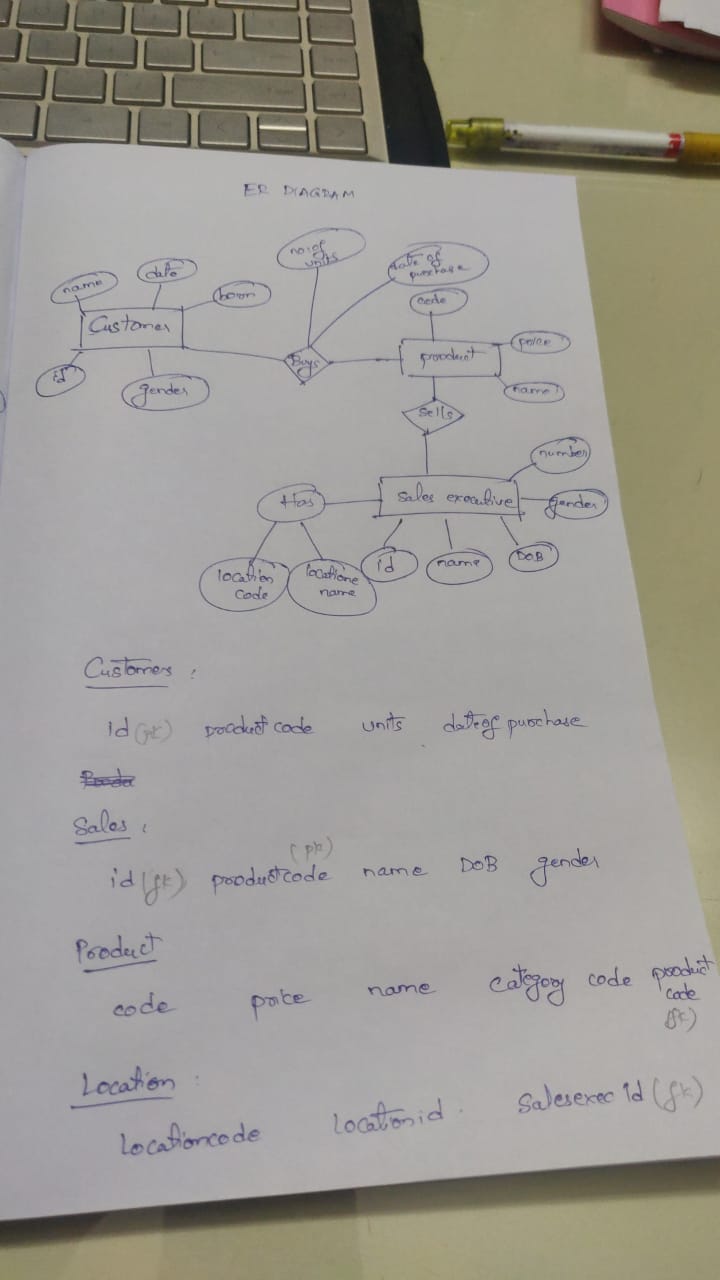 ER DIAGRAM
no: of
units
date of
purchase
name
date
born
code
Customer
Buys
product
price
id
gender
name
sells
number
Has
Sales executive
gender
location
code
locatione
name
id
name
DOB
Customers :
id (pk) product code units date of purchase
Sales :
(pk)
id (fk) productcode name DOB gender
Product
code price name category code product
code
(fk)
Location :
Locationcode locationid . Salesexec id (fk)